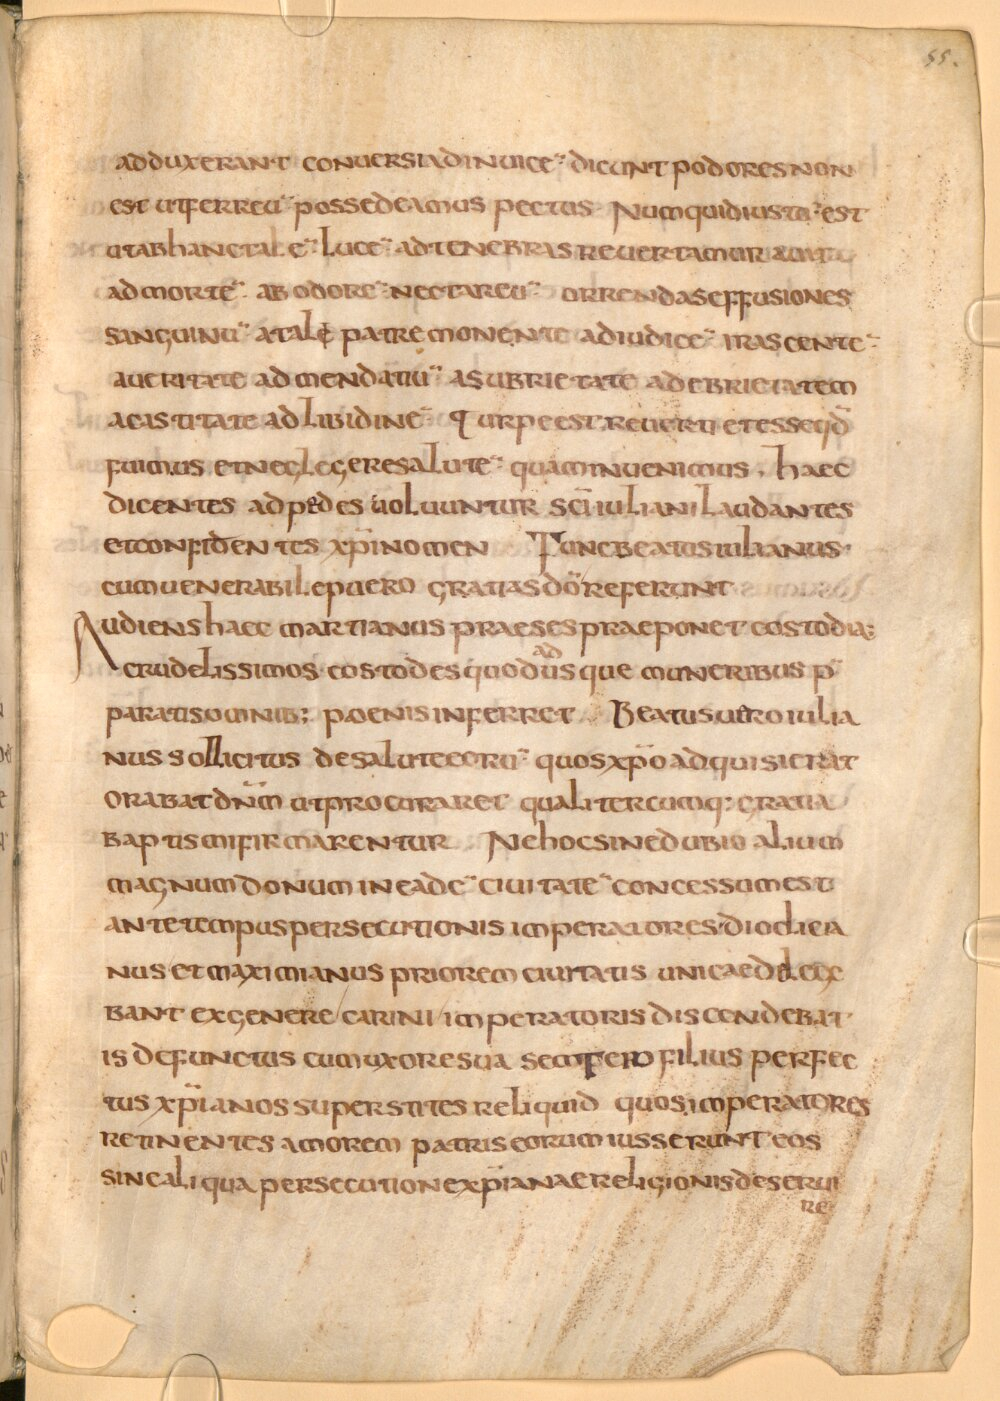 55.
adduxerant conuersi adinuicē dicunt podores non
est ut ferreū possedeamus pectus Numquid iustū est
ut ab hanc tale luce ad tenebras reuertamur a uita
ad mortē ab odore nectareū orrendas effusiones
sanguinū a tale patre monente ad iudicē irascente
a ueritate ad mendatiū a subrietate ad ebrietatem
a castitate ad libidinē Turpe est reuerti et esse qd̄
fuimus et neglegere salutē quam inuenimus . haec
dicentes ad pedes uoluuntur sc̄i iuliani laudantes
et confidentes xp̄i nomen Tunc beatus iulianus
cum uenerabile puero gratias dō referunt
Audiens haec martianus praeses praeponet costodia;
crudelissimos costodes quod ad usque muneribus p̄
paratis omnib; poenis inferret Beatus uero iulia
nus sollicitus de salute eorū quos xp̄o adquisierat
orabat dn̄m ut procuraret qualitercumq; gratia
baptismi firmarentur Ne hoc sine dubio alium
magnum donum in eadē ciuitatē concessum est
ante tempus persecutionis imperatores diocleia
nus et maximianus priorem ciuitatis unicae dele
bant ex genere carini imperatoris discendebat
is defunctus cum uxore sua septem filius perfec
tus xp̄ianos superstites reliquid quos imperatores
retinentes amorem patris eorum iusserunt eos
sine aliqua persecutione xp̄ianae religionis deserui
re